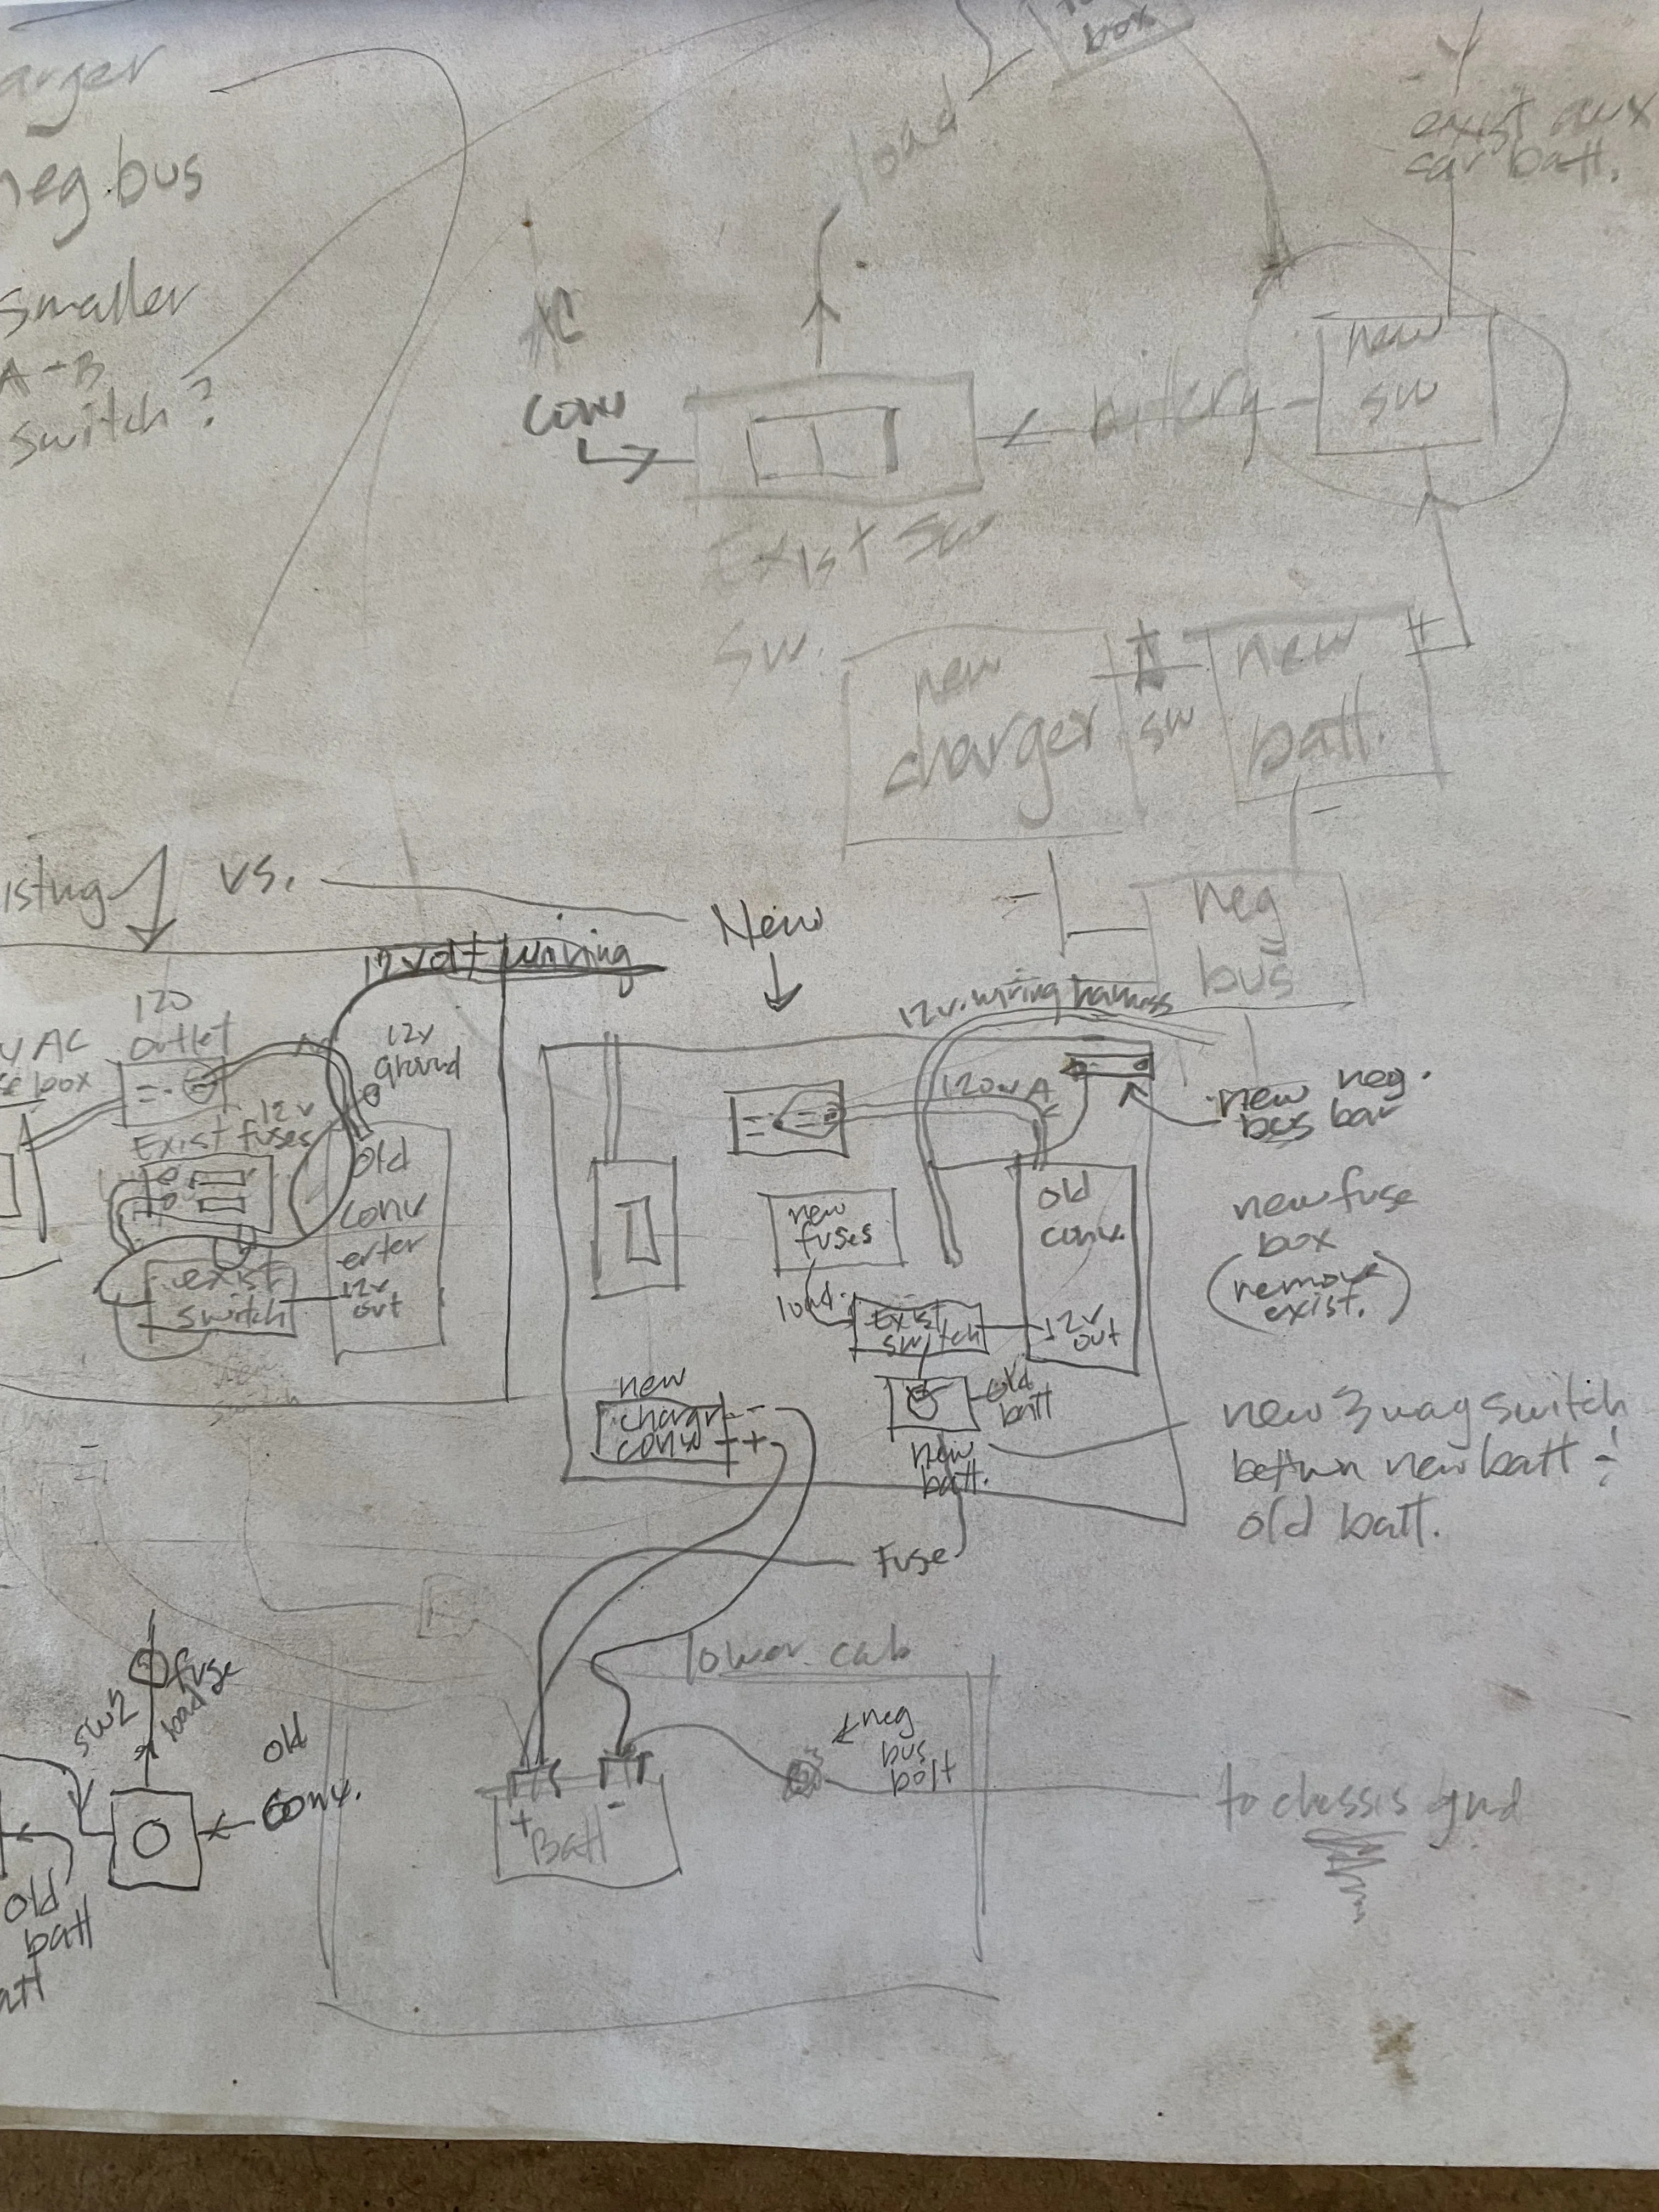 arger
neg.bus
smaller
A-B
switch?
box
load
exist aux
car batt.
AC
conv
new
sw
Exist Sw
sw.
new
charger
+
sw
new
batt.
+
-
-
neg
bus
isting
vs.
New
12volt wiring
120
outlet
V AC
box
12v
ground
12v
Exist fuses
old
conv
erter
12v
out
exist
switch
12v. wiring harness
new neg.
bus bar
new
fuses
load.
old
conv.
12v
out
Exist
switch
old
batt
new
batt.
new
charg
conv
-
+
new fuse
box
(remove
exist.)
new 3 way switch
betwn new batt &
old batt.
Fuse
lower cab
neg
bus
bolt
+
-
Batt
to chassis gnd
sw2
fuse
load
old
conv.
old
batt
att